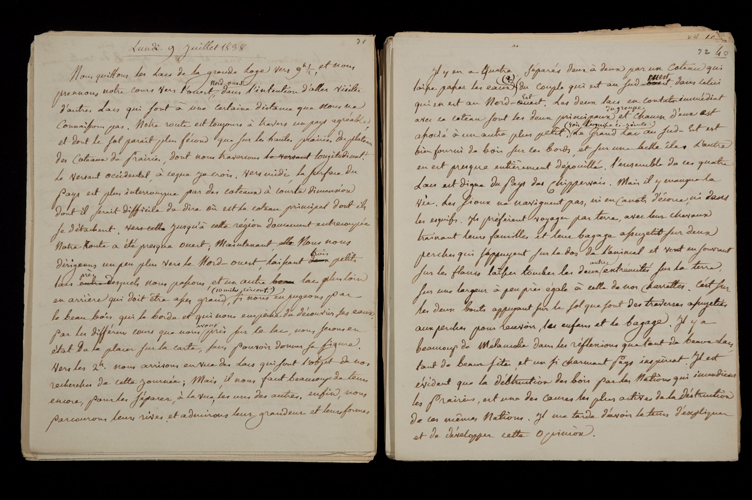 Lundi 9 Juillet 1838
31
Nous quittons les Lacs de la grande loge vers 9h ½, et nous
prenons notre cours vers l'ouest, nord ouest dans l'intention d'aller visiter
d'autres Lacs qui sont à une certaine distance que nous ne
Connaissons pas. Notre route est toujours à travers un pays agréable,
et dont le sol parait plus fécond que sur les hautes plaines du plateau
des Coteaux de prairie, dont nous traversons le versant longitudinal
le versant occidental à ce que je crois. vers midi la surface du
Pays est plus interrompue par des coteaux à courte dimension
dont il serait difficile de dire où est le coteau principal dont ils
se détachent.
Notre Route a été presque ouest. Maintenant Nous nous
dirigeons un peu plus vers le Nord ouest laissant trois petits
lacs près desquels nous passons et un autre lac plus loin
en arrière qui doit être assez grand si nous en jugeons par
le beau bois qui le borde et qui nous empêche de découvrir ses eaux.
par les différens cours que nous avons pris sur le lac, nous serons en
état de le placer sur la carte, sans pouvoir donner sa figure.
Vers les 2h. nous arrivons en vue des Lacs qui font l'objet de nos
recherches de cette journée; Mais, il nous faut beaucoup de tems
encore, pour les séparer, à la vue, les uns des autres. enfin, nous
parcourons leurs rives, et admirons leur grandeur et leurs formes.
32
Il y en a Quatre, séparés deux à deux par un Coteau qui
laisse passer les eaux du couple qui est au Sud ouest dans celui
qui est au Nord-Est. Les deux lacs en contact immédiat
avec ce coteau sont les deux principaux et chacun d'eux est
associé à un autre plus petit. Le grand Lac au Sud Est est
bien fourni de bois sur ses bords et sur une belle île. L'autre
en est presque entièrement dépouillé. l'ensemble de ces quatre
Lacs est digne du pays des Chippeways. Mais il y manque la
vie. Les Sioux ne naviguent pas, ni en canots d'écorce, ni dans
les esquifs. Ils préfèrent voyager par terre, avec leurs chevaux
traînant leurs familles et leur bagage assujettis sur deux
perches qui s'appuyent sur le dos de l'animal et vont en s'ouvrant
sur les flancs laisser tomber les deux autres extrémités sur la terre,
sur une largeur à peu près égale à celle de nos charrettes. C'est sur
les deux bouts appuyant sur le sol que sont des traverses assujetties
aux perches pour recevoir les enfans et le bagage. Il y a
beaucoup de Mélancolie dans les réflexions que tant de beaux lacs,
tant de beaux sites, et un si charmant pays inspirent. Il est
évident que la destruction des bois par les Nations qui incendient
les Prairies, est une des causes les plus actives de la destruction
de ces mêmes Nations. Il me tarde d'avoir le tems d'expliquer
et de développer cette Opinion.